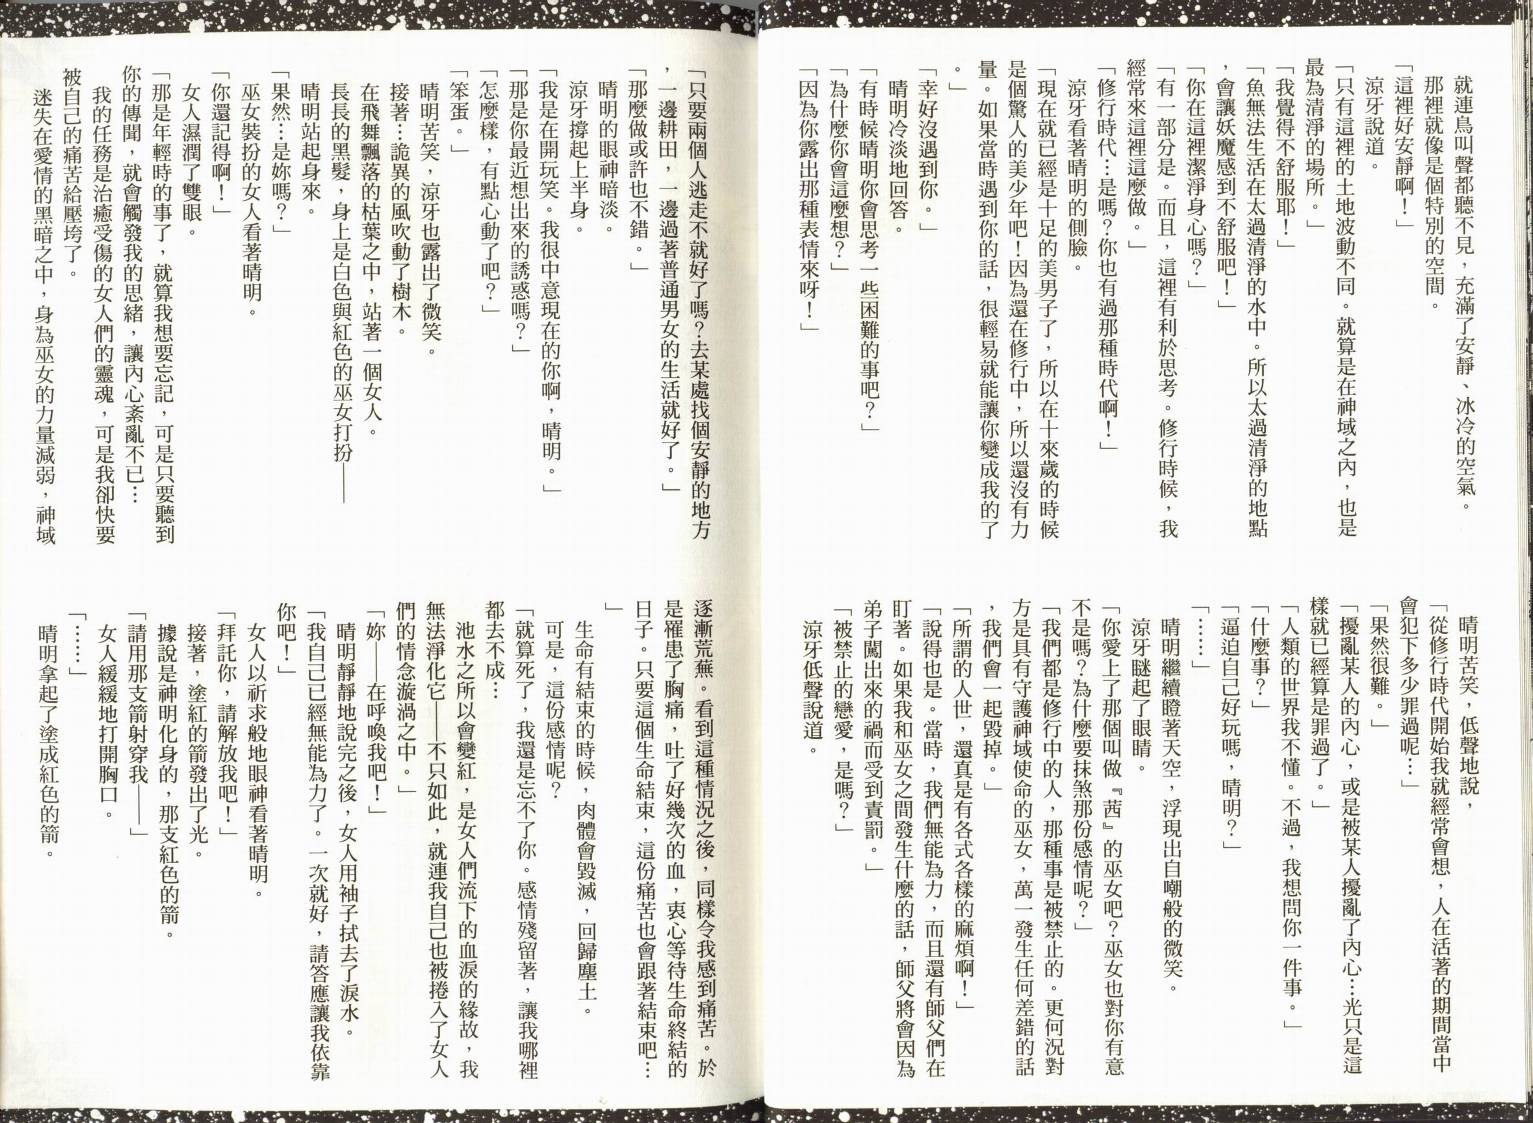 就連鳥叫聲都聽不見，充滿了安靜、冰冷的空氣。
那裡就像是個特別的空間。
「這裡好安靜啊！」
涼牙說道。
「只有這裡的土地波動不同。就算是在神域之內，也是
最為清淨的場所。」
「我覺得不舒服耶！」
「魚無法生活在太過清淨的水中。所以太過清淨的地點
，會讓妖魔感到不舒服吧！」
「你在這裡潔淨身心嗎？」
「有一部分是。而且，這裡有利於思考。修行時候，我
經常來這裡這麼做。」
「修行時代…是嗎？你也有過那種時代啊！」
涼牙看著晴明的側臉。
「現在就已經是十足的美男子了，所以在十來歲的時候
是個驚人的美少年吧！因為還在修行中，所以還沒有力
量。如果當時遇到你的話，很輕易就能讓你變成我的了
。」
「幸好沒遇到你。」
晴明冷淡地回答。
「有時候晴明你會思考一些困難的事吧？」
「為什麼你會這麼想？」
「因為你露出那種表情來呀！」
晴明苦笑，低聲地說，
「從修行時代開始我就經常會想，人在活著的期間當中
會犯下多少罪過呢…」
「果然很難。」
「擾亂某人的內心，或是被某人擾亂了內心…光只是這
樣就已經算是罪過了。」
「人類的世界我不懂。不過，我想問你一件事。」
「什麼事？」
「逼迫自己好玩嗎，晴明？」
「……」
晴明繼續瞪著天空，浮現出自嘲般的微笑。
涼牙瞇起了眼睛。
「你愛上了那個叫做『茜』的巫女吧？巫女也對你有意
不是嗎？為什麼要抹煞那份感情呢？」
「我們都是修行中的人，那種事是被禁止的。更何況對
方是具有守護神域使命的巫女，萬一發生任何差錯的話
，我們會一起毀掉。」
「所謂的人世，還真是有各式各樣的麻煩啊！」
「說得也是。當時，我們無能為力，而且還有師父們在
盯著。如果我和巫女之間發生什麼的話，師父將會因為
弟子闖出來的禍而受到責罰。」
「被禁止的戀愛，是嗎？」
涼牙低聲說道。
「只要兩個人逃走不就好了嗎？去某處找個安靜的地方
，一邊耕田，一邊過著普通男女的生活就好了。」
「那麼做或許也不錯。」
晴明的眼神暗淡。
涼牙撐起上半身。
「我是在開玩笑。我很中意現在的你啊，晴明。」
「那是你最近想出來的誘惑嗎？」
「怎麼樣，有點心動了吧？」
「笨蛋。」
晴明苦笑，涼牙也露出了微笑。
接著…詭異的風吹動了樹木。
在飛舞飄落的枯葉之中，站著一個女人。
長長的黑髮，身上是白色與紅色的巫女打扮——
晴明站起身來。
「果然…是妳嗎？」
巫女裝扮的女人看著晴明。
「你還記得啊！」
女人濕潤了雙眼。
「那是年輕時的事了，就算我想要忘記，可是只要聽到
你的傳聞，就會觸發我的思緒，讓內心紊亂不已…
我的任務是治癒受傷的女人們的靈魂，可是我卻快要
被自己的痛苦給壓垮了。
迷失在愛情的黑暗之中，身為巫女的力量減弱，神域
逐漸荒蕪。看到這種情況之後，同樣令我感到痛苦。於
是罹患了胸痛，吐了好幾次的血，衷心等待生命終結的
日子。只要這個生命結束，這份痛苦也會跟著結束吧…
」
生命有結束的時候，肉體會毀滅，回歸塵土。
可是，這份感情呢？
「就算死了，我還是忘不了你。感情殘留著，讓我哪裡
都去不成…
池水之所以會變紅，是女人們流下的血淚的緣故，我
無法淨化它——不只如此，就連我自己也被捲入了女人
們的情念漩渦之中。」
「妳——在呼喚我吧！」
晴明靜靜地說完之後，女人用袖子拭去了淚水。
「我自己已經無能為力了。一次就好，請答應讓我依靠
你吧！」
女人以祈求般地眼神看著晴明。
「拜託你，請解放我吧！」
接著，塗紅的箭發出了光。
據說是神明化身的，那支紅色的箭。
「請用那支箭射穿我——」
女人緩緩地打開胸口。
「……」
晴明拿起了塗成紅色的箭。